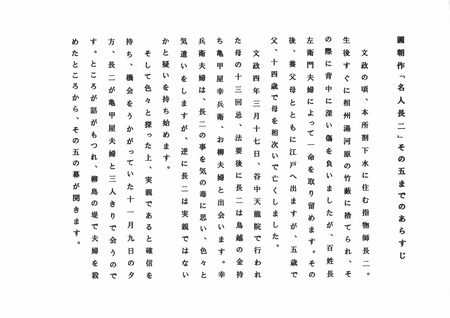 圓朝作「名人長二」その五までのあらすじ
文政の頃、本所割下水に住む指物師長二。
生後すぐに相州湯河原の竹薮に捨てられ、そ
の際に背中に深い傷を負いましたが、百姓長
左衛門夫婦によって一命を取り留めます。その
後、養父母とともに江戸へ出ますが、五歳で
父、十四歳で母を相次いで亡くしました。
文政四年三月十七日、谷中天龍院で行われ
た母の十三回忌、法要後に長二は鳥越の金持
ち亀甲屋幸兵衛、お柳夫婦と出会います。幸
兵衛夫婦は、長二の事を気の毒に思い、色々と
気遣いをしますが、逆に長二は実親ではない
かと疑いを持ち始めます。
そして色々と探った上、実親であると確信を
持ち、機会をうかがっていた十一月九日の夕
方、長二が亀甲屋夫婦と三人きりで会うので
す。ところが話がもつれ、柳島の堤で夫婦を殺
めたところから、その五の幕が開きます。